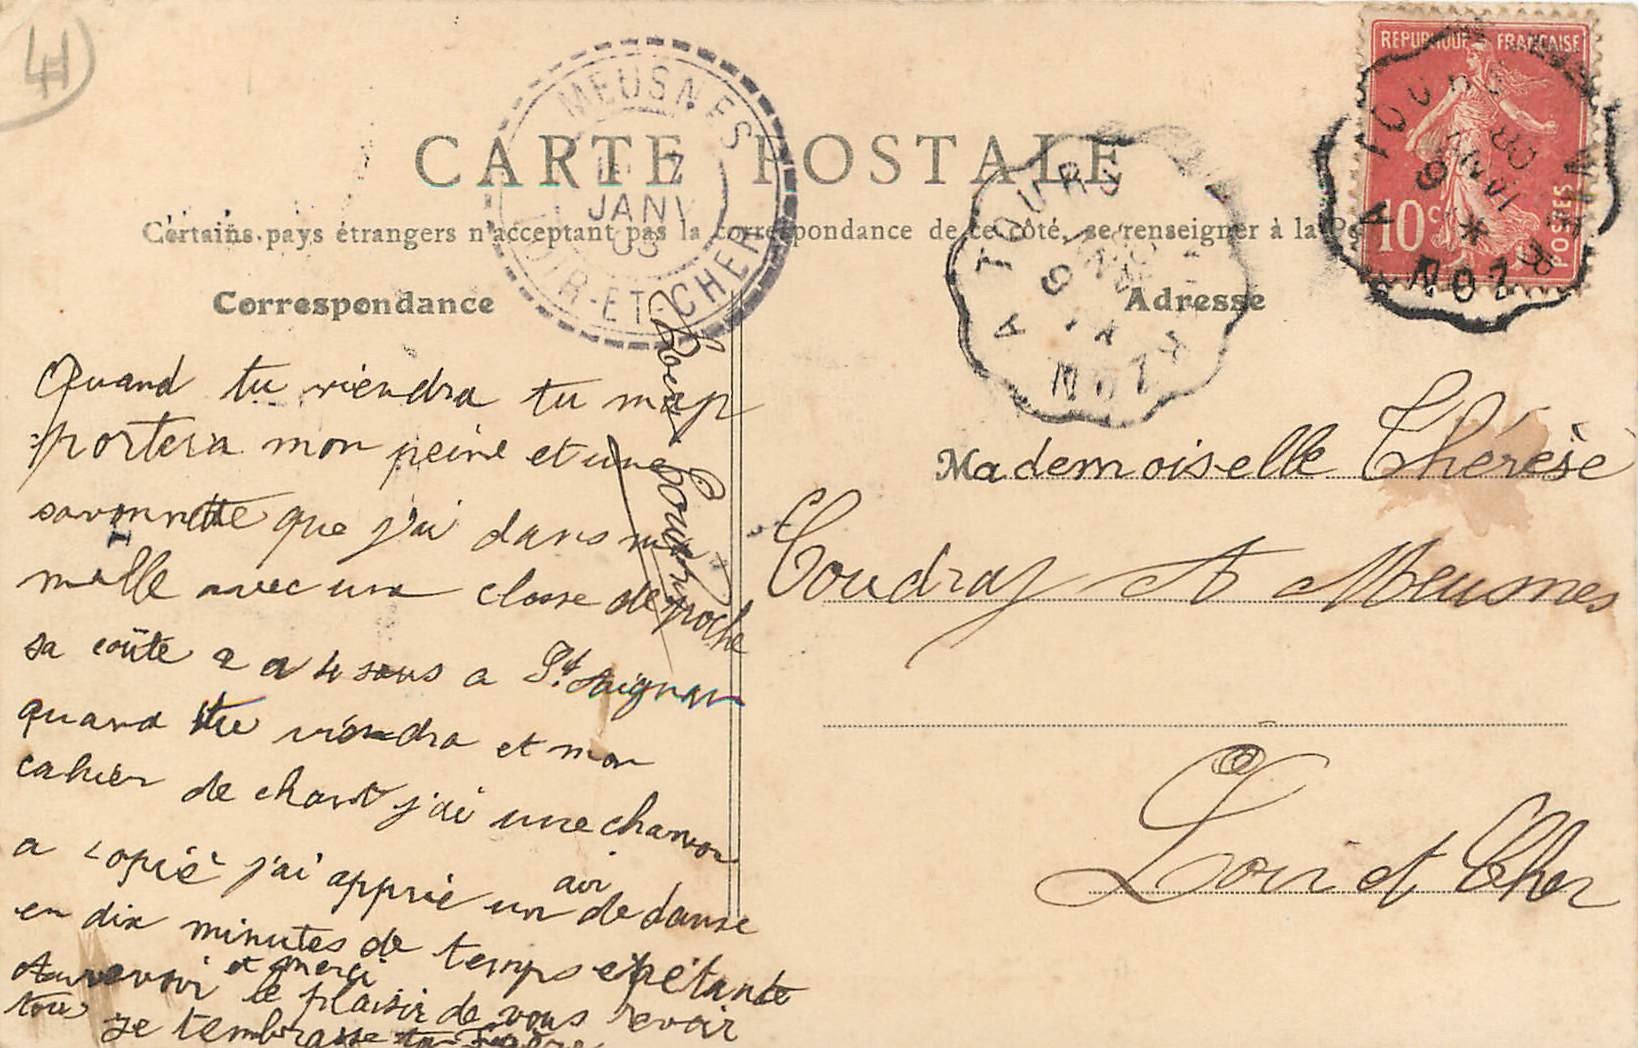 4H
MEUSNES
7
JANV
08
LOIR-ET-CHER
CARTE POSTALE
Certains pays étrangers n'acceptant pas la correspondance de ce côté, se renseigner à la
REPUBLIQUE FRANÇAISE
10c
POSTES
A TOURS
A TOURS
Correspondance
Adresse
Quand tu viendra tu map
portera mon peine et une
savonnette que j'ai dans ma
malle avec une close de poche
sa coûte 2 a 4 sous a St. Aignan
quand tu viendra et mon
cahier de chant j'ai une chanson
a copié j'ai apprie un air de danse
en dix minutes de temps
Aurevoir et merci
le plaisir de vous revoir
tous je t'embrasse ta
Mademoiselle Thérèse
Coudray A Meusnes
Loir et Cher